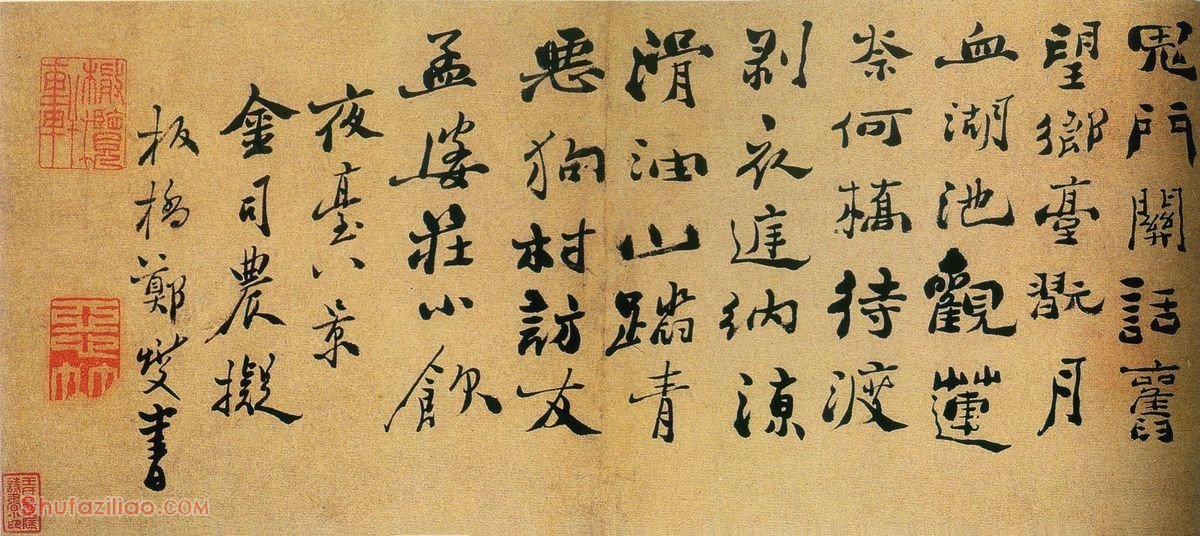 鬼門關話舊
望鄉臺翫月
血湖池觀蓮
柰何橋待渡
剥衣亭納涼
滑油山踏青
惡狗村訪友
孟婆莊小飲
夜臺八景
金司農擬
板橋鄭燮書
Shufaziliao.com